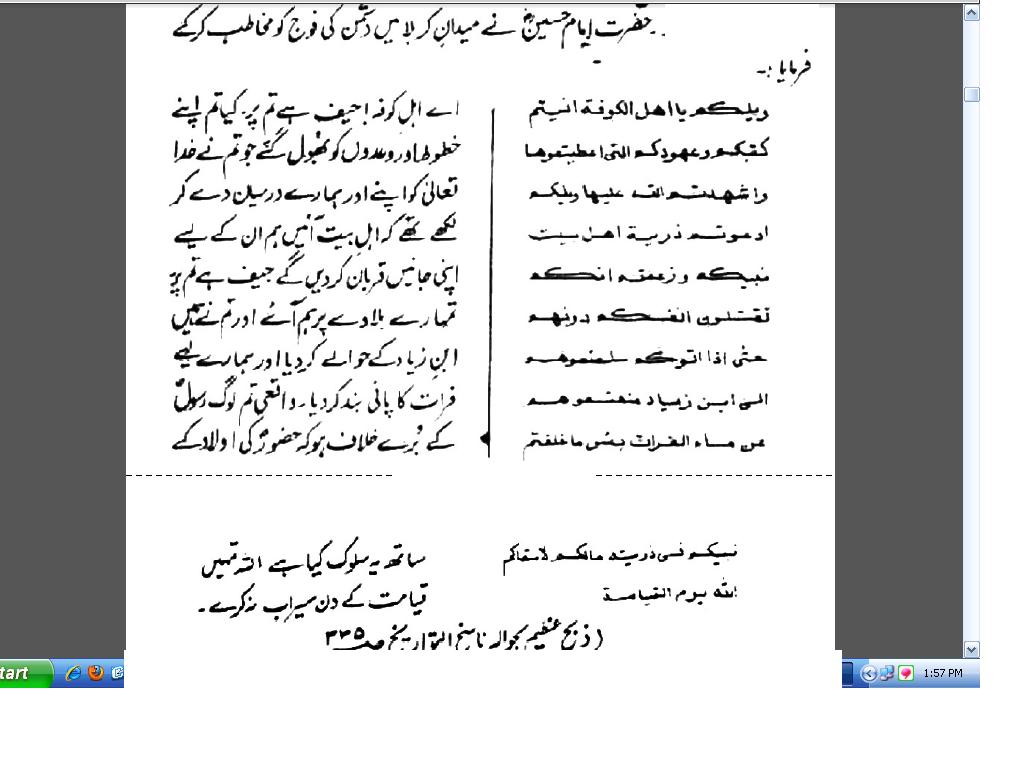 حضرت امام حسینؑ نے میدان کربلا میں دشمن کی فوج کو مخاطب کرکے
فرمایا :-
ویلکم یا اهل الکوفة انسیتم
کتبکم وعهودکم التی اعطیتموها
واشهدتم الله علیها ویلکم
ادعوتم ذریة اهل بیت
نبیکم وزعمتم انکم
تقتلون انفسکم دونهم
حتی اذا اتوکم سلمتموهم
الی ابن زیاد منعتموهم
عن ماء الفرات بئس ما خلفتم
اے اہل کوفہ! حیف ہے تم پر۔ کیا تم اپنے
خطوط اور وعدوں کو بھول گئے جو تم نے خدا
تعالیٰ کو اپنے اور ہمارے درمیان دے کر
لکھے تھے کہ اہل بیت آئیں ہم ان کے لیے
اپنی جانیں قربان کردیں گے حیف ہے تم پر
تمہارے بلاوے پر ہم آئے اور تم نے ہمیں
ابن زیاد کے حوالے کردیا اور ہمارے لیے
فرات کا پانی بند کردیا۔ واقعی تم لوگ رسولؐ
کے بُرے خلاف ہو کہ حضورؐ کی اولاد کے
نبیکم فی ذریته مالکم لاسقاکم
الله یوم القیامة
ساتھ یہ سلوک کیا ہے اللہ تمہیں
قیامت کے دن سیراب نہ کرے۔
(ذبح عظیم بحوالہ ناسخ التواریخ ص ۳۳۵
tart
1:57 PM